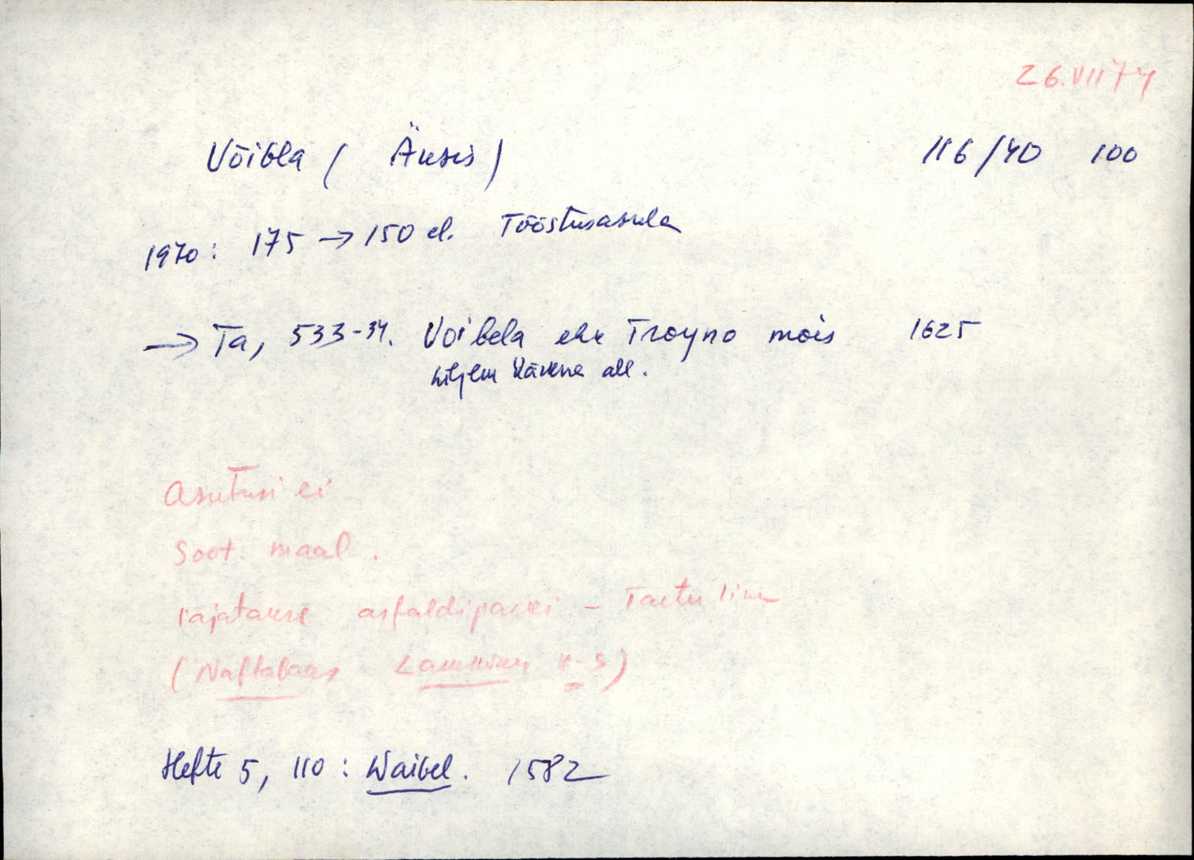 26.VII 74
Võibla ( Äksis ) 116/40 100
1970: 175 → 150 el. Tööstusasula
→ Ta, 533-34. Voibela ehk Troyno mõis 1625
hiljem Kärkna all.
Asutusi ei
Soot. maal.
rajatakse asfaldi - Tartu linn
(Naftabaas Lammiku k-s)
Hefte 5, 110 : Waibel. 1582